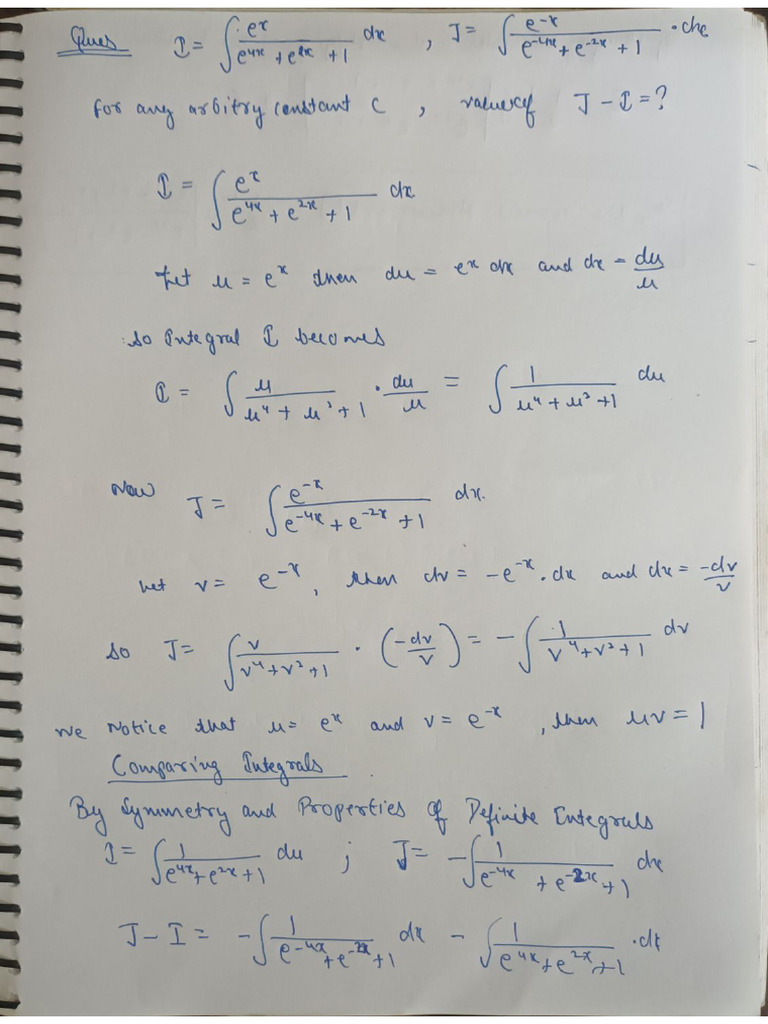 Ques I = ∫ e^x / (e^4x + e^2x + 1) dx , J = ∫ e^-x / (e^-4x + e^-2x + 1) · dx
for any arbitry constant C , value of J - I = ?
I = ∫ e^x / (e^4x + e^2x + 1) dx
Let u = e^x then du = e^x dx and dx = du/u
so Integral I becomes
I = ∫ u / (u^4 + u^2 + 1) · du/u = ∫ 1 / (u^4 + u^2 + 1) du
Now J = ∫ e^-x / (e^-4x + e^-2x + 1) dx.
let v = e^-x , then dv = -e^-x . dx and dx = -dv/v
so J = ∫ v / (v^4 + v^2 + 1) · (-dv/v) = - ∫ 1 / (v^4 + v^2 + 1) dv
We Notice that u = e^x and v = e^-x , then uv = 1
Comparing Integrals
By Symmetry and Properties of Definite Integrals
I = ∫ 1 / (e^4x + e^2x + 1) du ; J = - ∫ 1 / (e^-4x + e^-2x + 1) dx
J - I = - ∫ 1 / (e^-4x + e^-2x + 1) dx - ∫ 1 / (e^4x + e^2x + 1) · dt